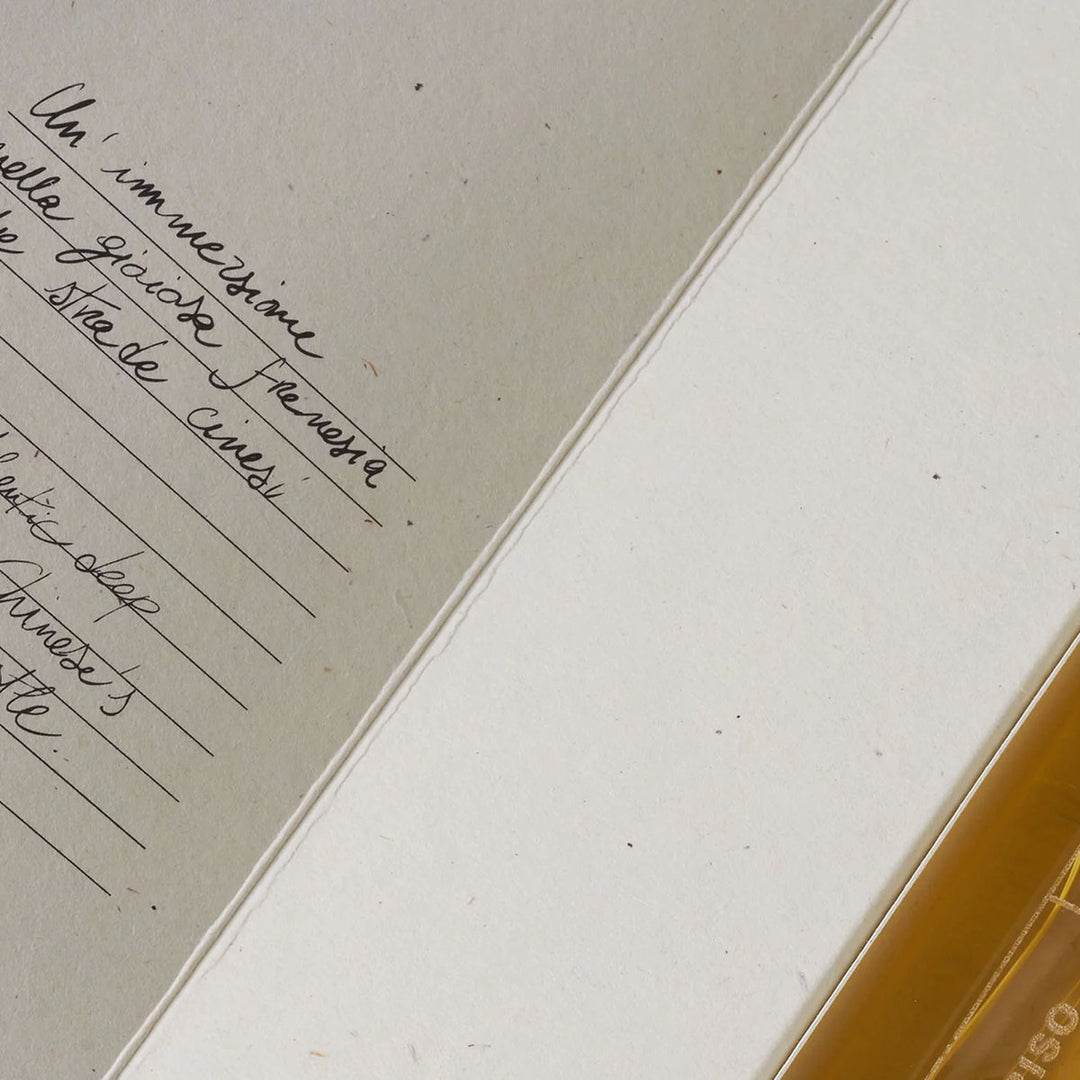 Un' immersione
nella gioiosa frenesia
strade cinesi
deep
Chinese's